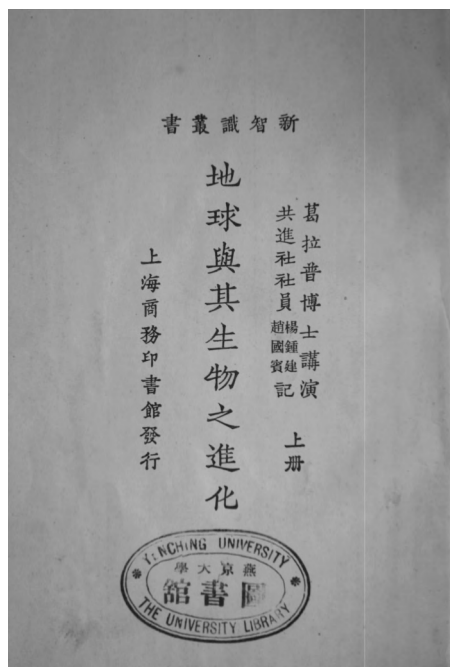 新智識叢書
葛拉普博士講演
共進社社員
楊鍾建
趙國賓
記
上册
地球與其生物之進化
上海商務印書館發行
YENCHING UNIVERSITY
燕京大學
圖書館
THE UNIVERSITY LIBRARY